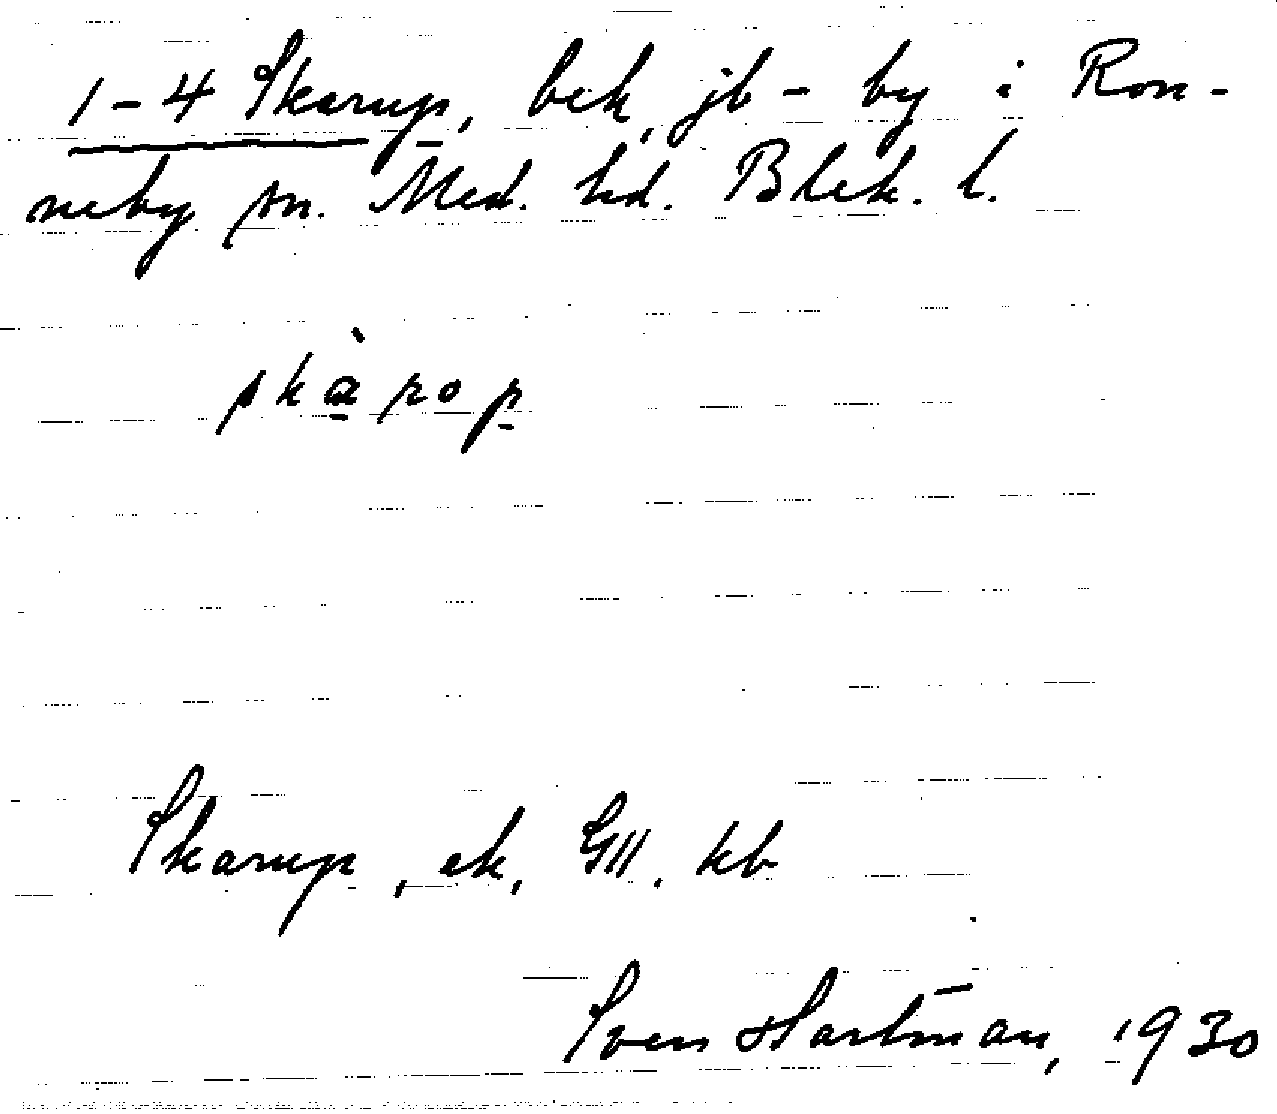 1-4 Skarup, bek, jb - by i Ron-
neby sn. Med. hd. Blek. l.
skàrop
Skarup, ek, GII. kb
Sven Hartman, 1930